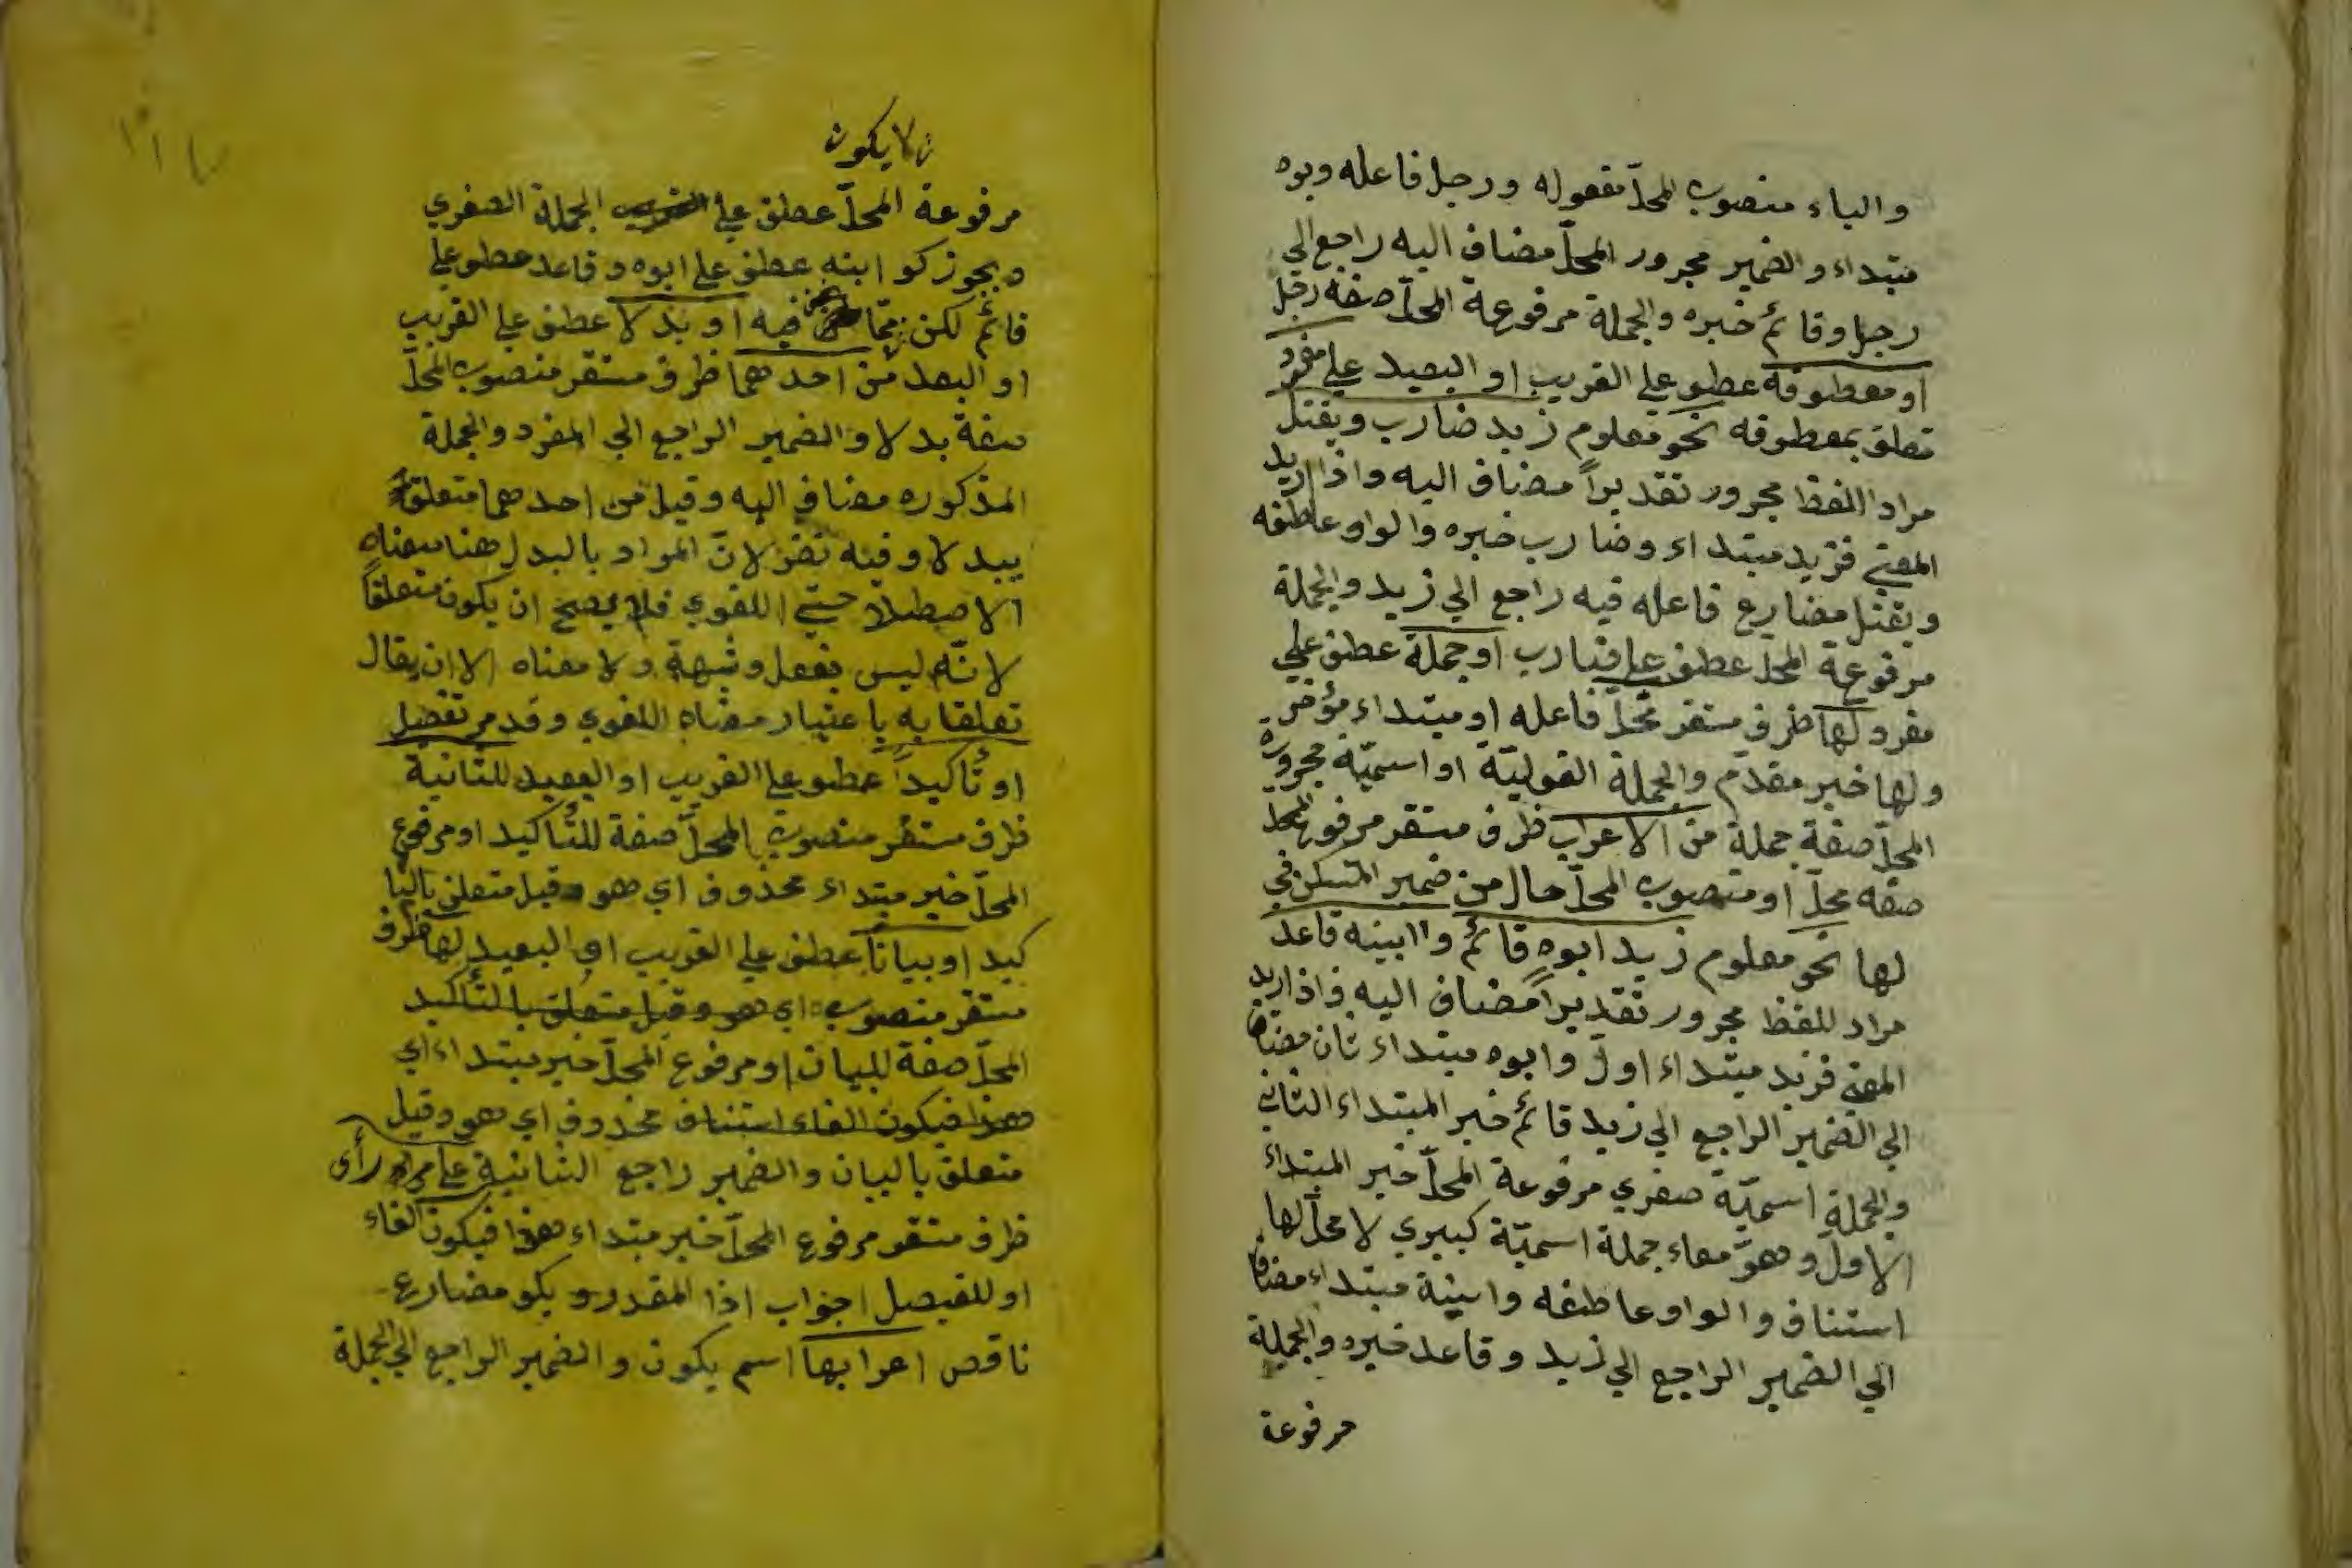 والياء منصوب المحلّ مفعوله ورجل فاعله وبوه
مبتداء والضمير مجرور المحلّ مضاف اليه راجع الي
رجل وقائم خبره والجملة مرفوعة المحلّ صفة رجل
او معطوفة عطو علي القريب او البعيد علي مفرد
تعلق بمعطوفه نحو معلوم زيد ضارب ويقتل
مراد اللفظ مجرور تقديراً مضاف اليه واذا اريد
المعني فزيد مبتداء وضارب خبره والواو عاطفه
ويقتل مضارع فاعله فيه راجع الي زيد والجملة
مرفوعة المحلّ عطف علي ضارب او جملة عطف علي
مفرد لها ظرف مستقر محلّ فاعله او مبتداء مؤخر
ولها خبر مقدم والجملة الفوليّة او اسميّة مجرورة
المحلّ صفة جملة من الاعراب ظرف مستقر مرفوع المحلّ
صفه محلّ او منصوب المحلّ حال من ضمير المتسكن في
لها نحو معلوم زيد ابوه قائم وابنه قاعد
مراد للفظ مجرور تقديراً مضاف اليه فاذا اريد
المعني فزيد مبتداء اول وابوه مبتداء ثان مضاف
الي الضمير الراجع الي زيد قائم خبر المبتداء الثاني
والجملة اسميّة صغري مرفوعة المحلّ خبر المبتداء
الاول وهو معاء جملة اسميّة كبيري لا محلّ لها
استناف والواو عاطفه وابنة مبتداء مضاف
الي الضمير الراجع الي زيد وقاعد خبره والجملة
مرفوعة
لا يكون
مرفوعة المحلّ عطف علي الجملة الصغري
ويجوز كو ابنه عطف علي ابوه وقاعد عطو علي
قائم لكن ممّا نحن فيه او بدلا عطف علي القريب
او البعد من احدهما ظرف مستقر منصوب المحلّ
صفة بدلا والضمير الراجع الي المفرد والجملة
المذكوره مضاف اليه وقيل من احدهما متعلق
ببدلا وفيه نظر لانّ المراد بالبدل هنا معناه
الاصطلاحيّ اللغوي فلا يصح ان يكون متعلقاً
لانّه ليس بفعل وشبهة ولا معناه الا ان يقال
تعلقا به باعتبار معناه اللغوي وقد مر تفضيل
او تأكيداً عطو علي القريب او البعيد للثانية
ظرف مستقر منصوب المحلّ صفة للتأكيد او مرفوع
المحلّ خبر مبتداء محذوف اي هو وقيل متعلق بالتا
كيد او بياناً عطف علي القريب او البعيد لها ظرف
مستقر منصوب اي هو وقيل متعلق بالتأكيد
المحلّ صفة للبيان او مرفوع المحلّ خبر مبتداء اي
هذا فيكون الفاء استناف محذوف اي هو وقيل
متعلق بالبيان والضمير راجع الثانية علي مر رأي
ظرف مستقر مرفوع المحلّ خبر مبتداء هذا فيكون الفاء
او للفيصل اجواب اذا المقدر ويكو مضارع
ناقص اعرابها اسم يكون والضمير الراجع الي الجملة